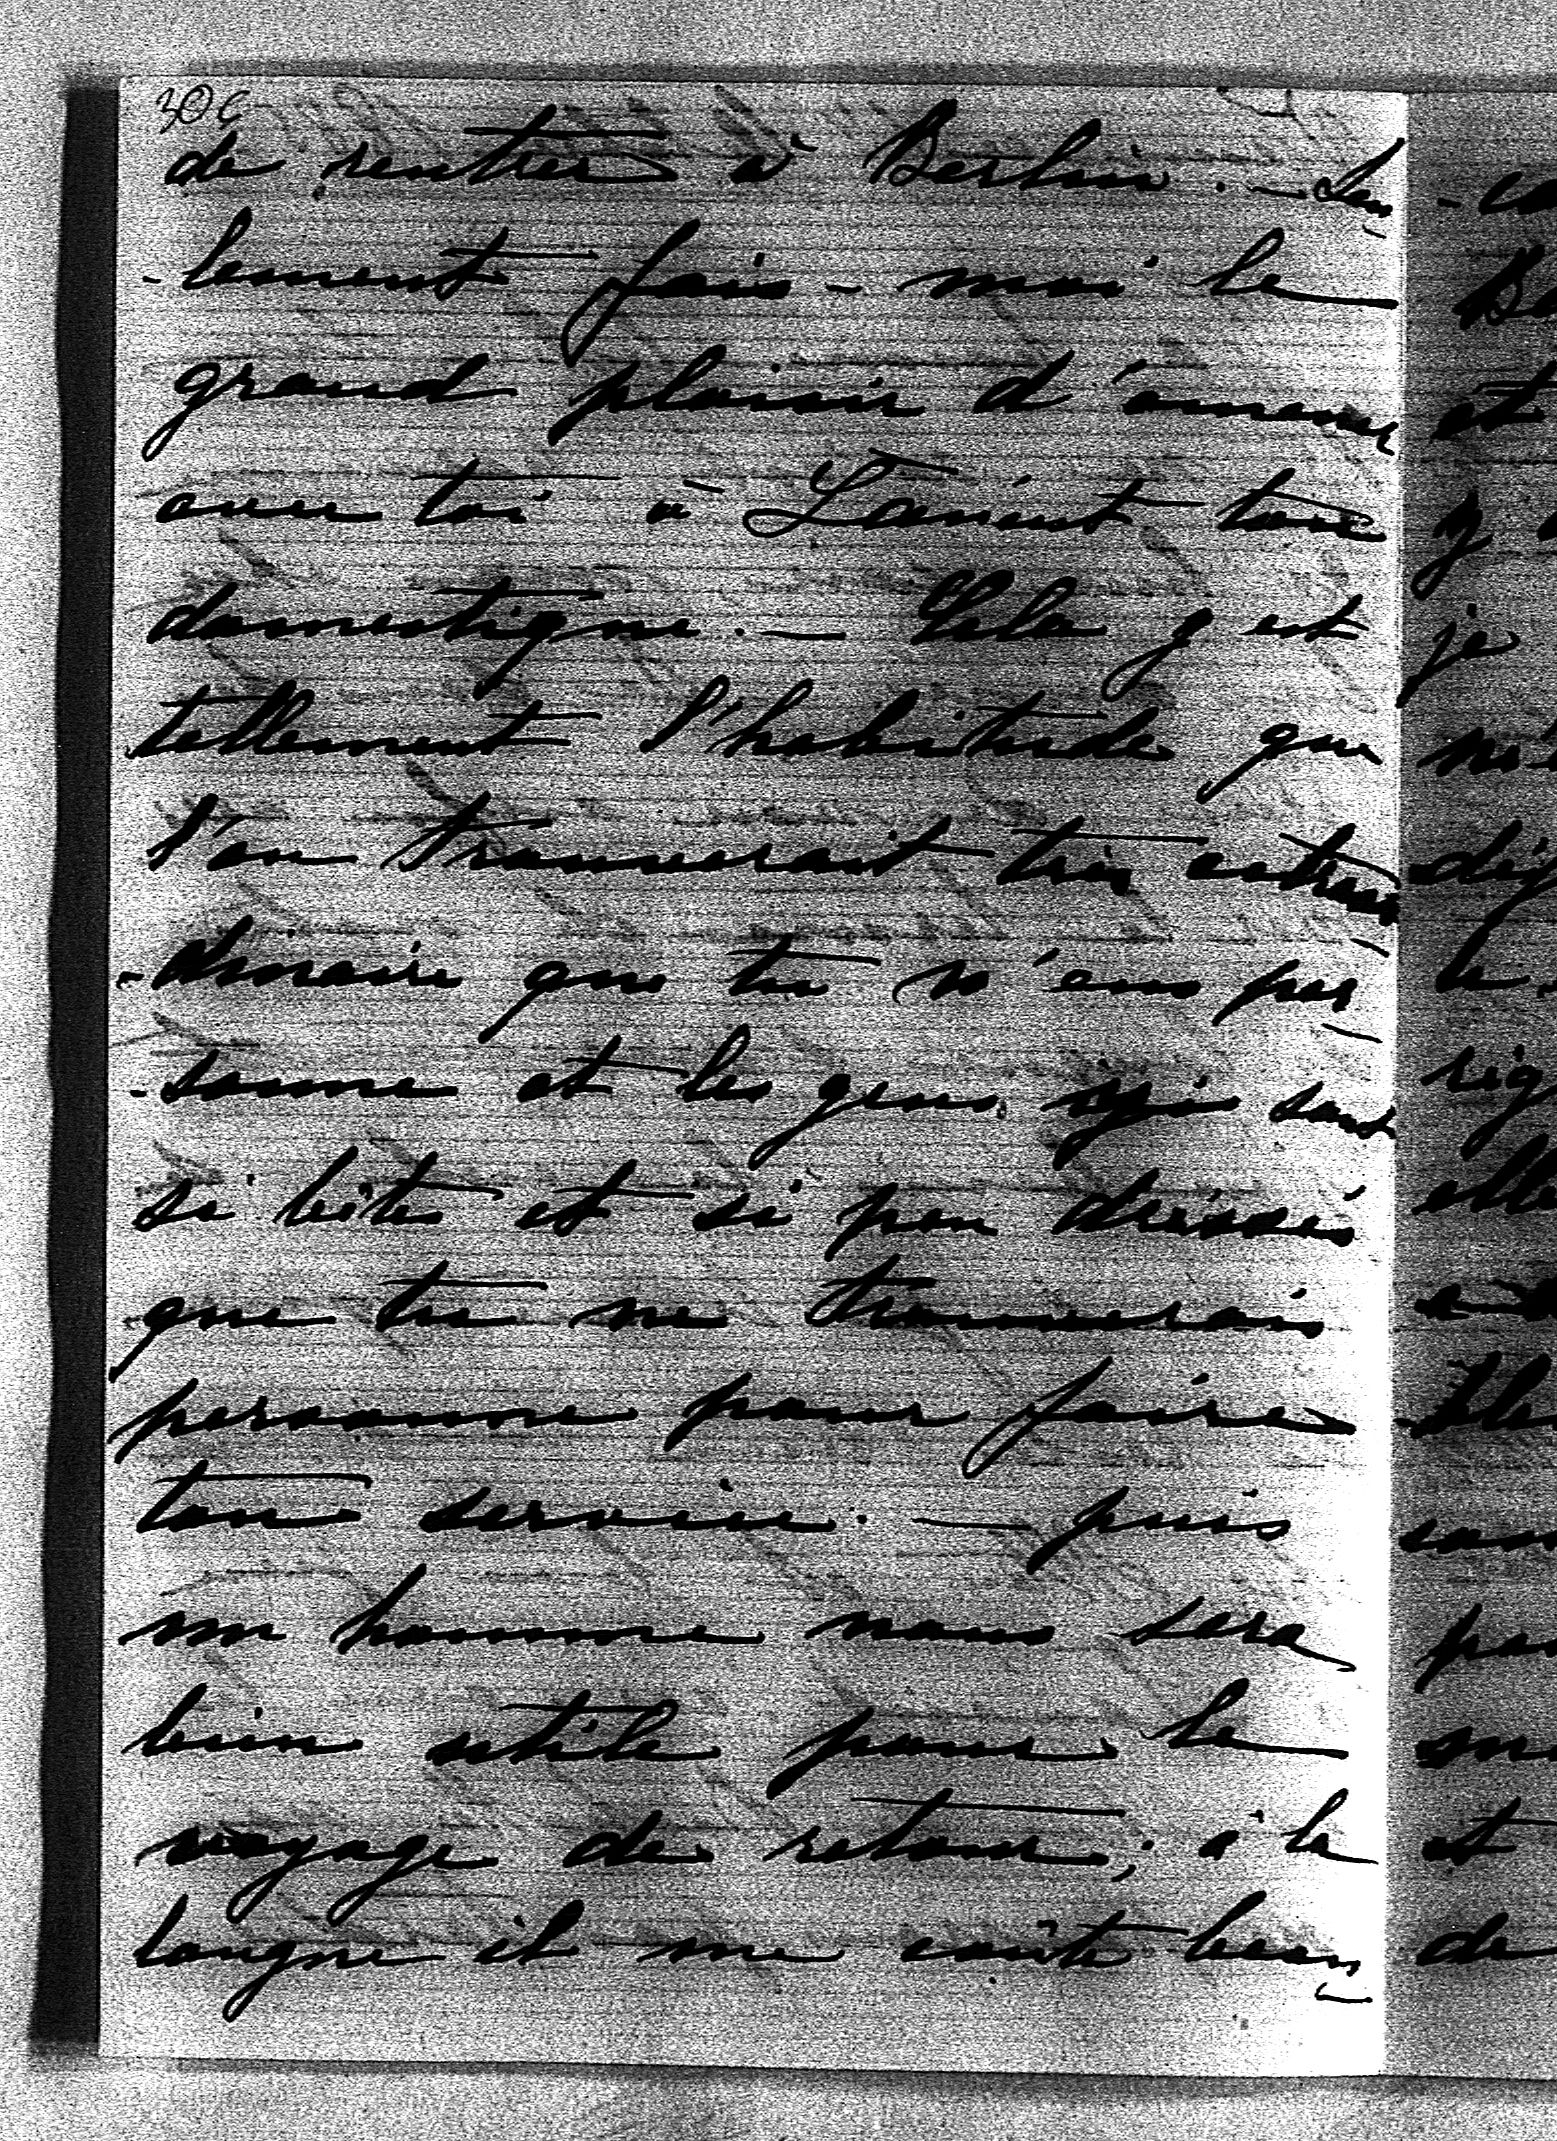 306
de rentrer à Berlin. — Seu-
-lement fais-moi le
grand plaisir d'amener
avec toi à Lancut ton
domestique. — Cela y est
tellement l'habitude que
l'on trouverait très extraor-
-dinaire que tu n'eus per-
-sonne et les gens y sont
si bêtes et si peu dressés
que tu ne trouverais
personne pour faire
ton service. — puis
un homme nous sera
bien utile pour le
voyage de retour; à la
longue il me coûte beau-